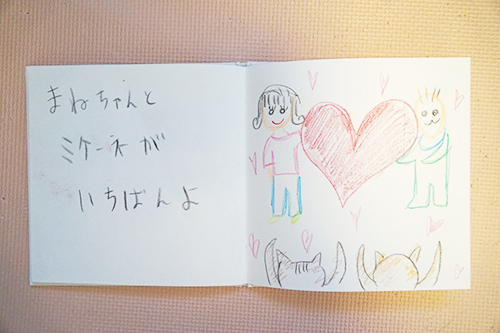 まねちゃんと
ミケーネが
いちばんよ